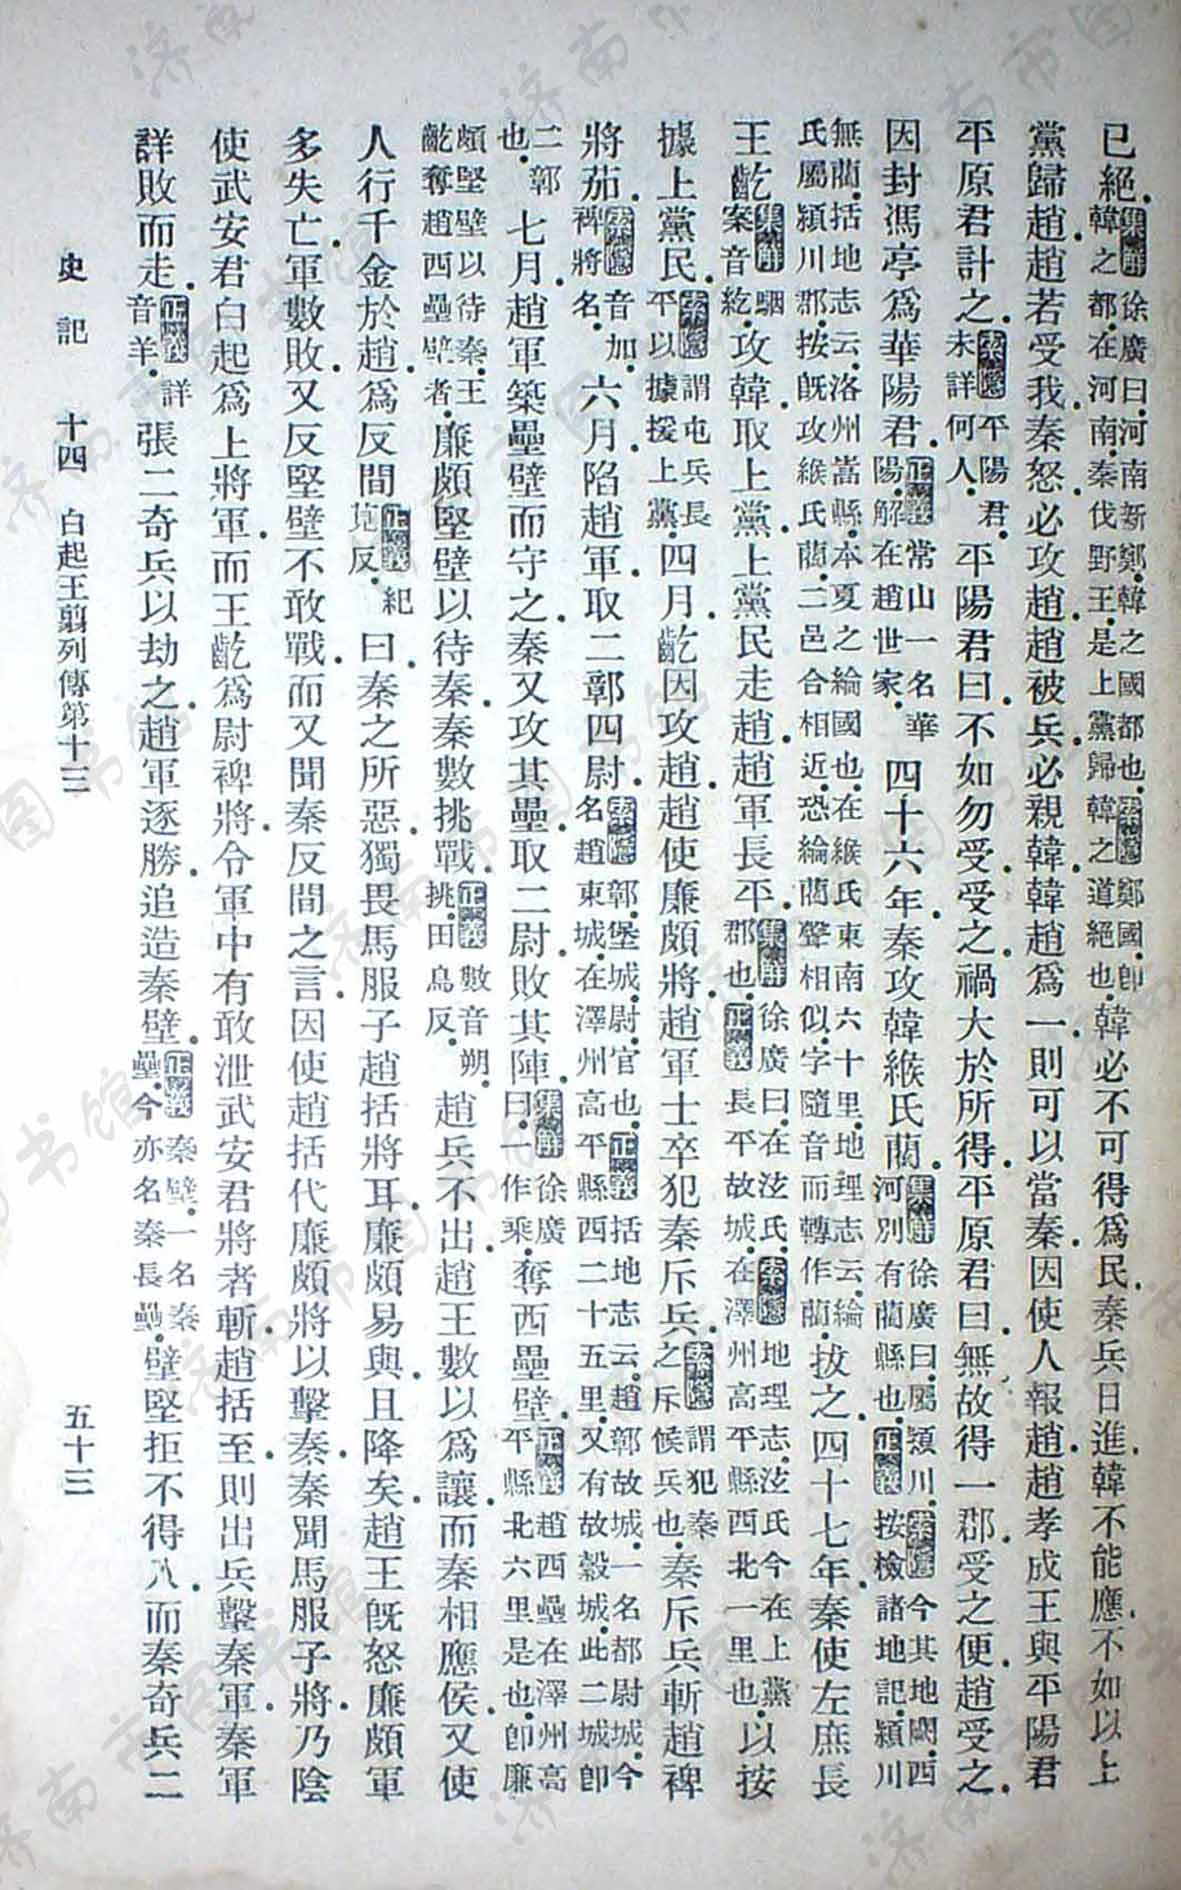 已絕。集解徐廣曰。河南新鄭。韓之國都也。索隱鄭國。卽韓之都。在河南。秦伐野王。是上黨歸韓之道絕也。韓必不可得爲民。秦兵日進。韓不能應。不如以上
黨歸趙。趙若受我。秦怒。必攻趙。趙被兵。必親韓。韓趙爲一。則可以當秦。因使人報趙。趙孝成王與平陽君
平原君計之。索隱平陽君。未詳何人。平陽君曰。不如勿受。受之。禍大於所得。平原君曰。無故得一郡。受之便。趙受之。
因封馮亭爲華陽君。正義常山一名華陽。解在趙世家。四十六年。秦攻韓緱氏藺。集解徐廣曰。屬潁川。索隱今其地闕。西河別有藺縣也。正義按檢諸地記。潁川
無藺。括地志云。洛州嵩縣。本夏之綸國也。在緱氏東南六十里。地理志云。綸氏屬潁川郡。按旣攻緱氏藺。二邑合相近。恐綸藺聲相似。字隨音而轉作藺。拔之。四十七年。秦使左庶長
王齕集解駰案音紇。攻韓。取上黨。上黨民走趙。趙軍長平。集解徐廣曰。在泫氏。索隱地理志。泫氏今在上黨郡也。正義長平故城。在澤州高平縣西北一里也。以按
據上黨民。索隱謂屯兵長平。以據援上黨。四月。齕因攻趙。趙使廉頗將。趙軍士卒犯秦斥兵。索隱謂犯秦之斥候兵也。秦斥兵斬趙裨
將茄。索隱音加。裨將名。六月。陷趙軍。取二鄣四尉。索隱鄣。堡城。尉。官也。正義括地志云。趙鄣故城。一名都尉城。今名趙東城。在澤州高平縣西二十五里。又有故穀城。此二城卽
二鄣也。七月。趙軍築壘壁而守之。秦又攻其壘。取二尉。敗其陣。集解徐廣曰。一作乘。奪西壘壁。正義趙西壘在澤州高平縣北六里是也。卽廉
頗堅壁以待秦。王齕奪趙西壘壁者。廉頗堅壁以待秦。秦數挑戰。正義數音朔。挑。田鳥反。趙兵不出。趙王數以爲讓。而秦相應侯。又使
人行千金於趙。爲反間正義紀莧反。曰。秦之所惡。獨畏馬服子趙括將耳。廉頗易與。且降矣。趙王旣怒廉頗軍
多失亡。軍數敗。又反堅壁不敢戰。而又聞秦反間之言。因使趙括代廉頗將以擊秦。秦聞馬服子將。乃陰
使武安君白起爲上將軍。而王齕爲尉裨將。令軍中有敢泄武安君將者斬。趙括至。則出兵擊秦軍。秦軍
詳敗而走。正義詳音羊。張二奇兵以劫之。趙軍逐勝。追造秦壁。正義秦壁。一名秦壘。今亦名秦長壘。壁堅拒不得入。而秦奇兵二
史記　十四　白起王翦列傳第十三　五十三